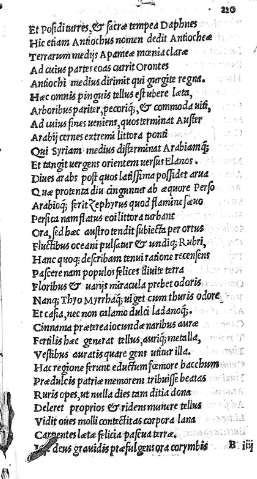 220
Et Posidi turres, & sacræ tempea Daphnes
Hic etiam Antiochus nomen dedit Antiocheæ
Terrarum medijs Apaneæ mœnia claræ
Ad cuius partes eoas currit Orontes
Antiochi medius dirimit qui gurgite regna.
Hæc omnis pinguis tellus est ubere læta,
Arboribus pariter, pecoriq;, & commoda uiti,
Ad cuius fines ueniens, quos terminat Auster
Arabij cernes extremi littora ponti
Qui Syriam medius disterminat Arabiamq;
Et tangit uergens orientem uersus Elanos.
Diues arabs post quos latissima possidet arua
Quæ protenta diu cinguntur ab æquore Perso
Arabioq;, ferit Zephyrus quod flamine sæuo
Persica nam flatus eoi littora turbant
Ora, sed hæc austro tendit subiecta per ortus
Fluctibus oceani pulsatur & undiq; Rubri,
Hanc quoq; describam tenui ratione recensens
Pascere nam populos felices illiuite terra
Floribus & uarijs miracula præbet odoris
Nanq; Thro Myrrhaq; uiget cum thuris odore
Et casia, nec non calamo dulci ladanoq;.
Cinnama præterea iocundæ naribus auræ
Fertilis hæc generat tellus, auriq; metalla,
Vestibus auratis quare gens utitur illa.
Hac regione ferunt eductum fœmore bacchum
Prædulcis patriæ memorem tribuisse beatas
Ruris opes, ut nulla dies tam ditia dona
Deleret proprios & ridem munere tellus
Vidit oues molli contectas corpora lana
Carpentes lætæ felicia pascua terræ.
deus grauidis præfulgens ora corymbis
B iiij